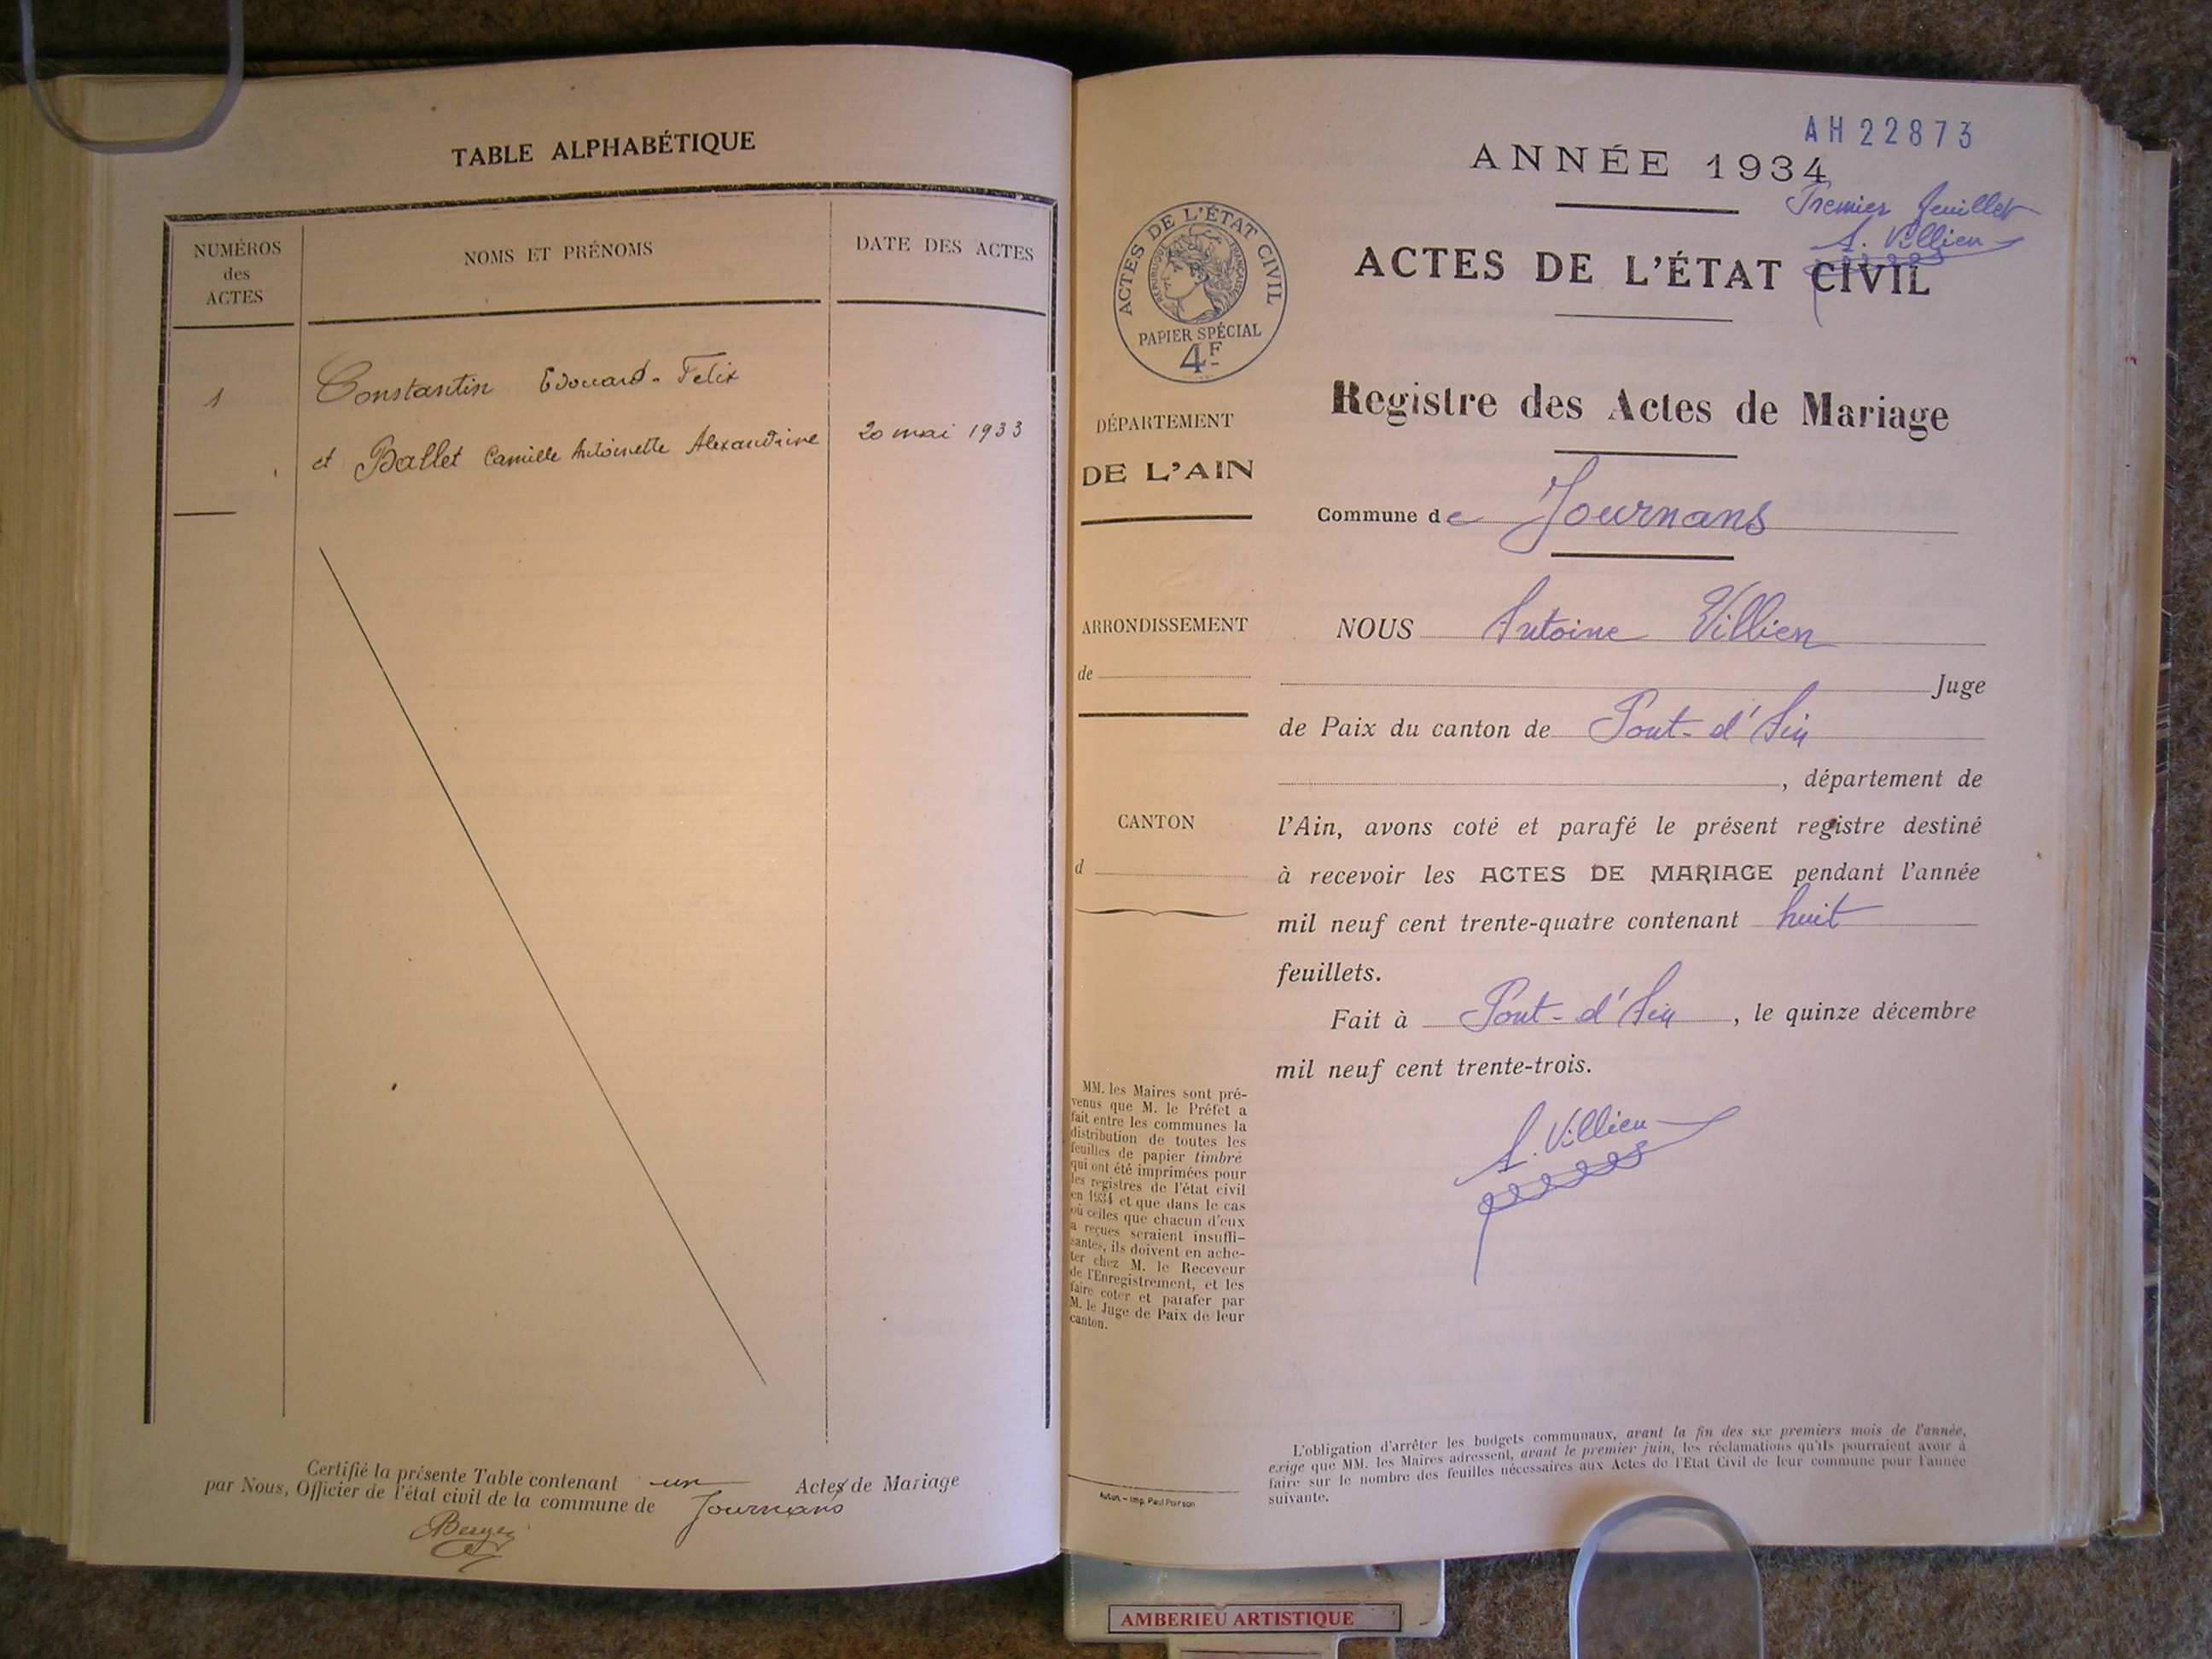 TABLE ALPHABÉTIQUE
NUMÉROS
des
ACTES
NOMS ET PRÉNOMS
DATE DES ACTES
1
Constantin Edouard-Felix
et Ballet Camille Antoinette Alexandrine
20 mai 1933
Certifié la présente Table contenant un Actes de Mariage
par Nous, Officier de l'état civil de la commune de Journans
AH22873
ANNÉE 1934
Premier feuillet
A. Villien
ACTES DE L'ÉTAT CIVIL
ACTES DE L'ÉTAT CIVIL
RÉPUBLIQUE FRANÇAISE
PAPIER SPÉCIAL
4F
Registre des Actes de Mariage
DÉPARTEMENT
DE L'AIN
Commune de Journans
ARRONDISSEMENT
de
CANTON
d
NOUS Antoine Villien
Juge
de Paix du canton de Pont-d'Ain
, département de
l'Ain, avons coté et parafé le présent registre destiné
à recevoir les ACTES DE MARIAGE pendant l'année
mil neuf cent trente-quatre contenant huit
feuillets.
Fait à Pont-d'Ain, le quinze décembre
mil neuf cent trente-trois.
A. Villien
MM. les Maires sont pré-
venus que M. le Préfet a
fait entre les communes la
distribution de toutes les
feuilles de papier timbré
qui ont été imprimées pour
les registres de l'état civil
en 1934 et que dans le cas
où celles que chacun d'eux
a reçues seraient insuffi-
santes, ils doivent en ache-
ter chez M. le Receveur
de l'Enregistrement, et les
faire coter et parafer par
M. le Juge de Paix de leur
canton.
L'obligation d'arrêter les budgets communaux, avant la fin des six premiers mois de l'année,
exige que MM. les Maires adressent, avant le premier juin, les réclamations qu'ils pourraient avoir à
faire sur le nombre des feuilles nécessaires aux Actes de l'Etat Civil de leur commune pour l'année
suivante.
Autun. – Imp. Paul
AMBERIEU ARTISTIQUE